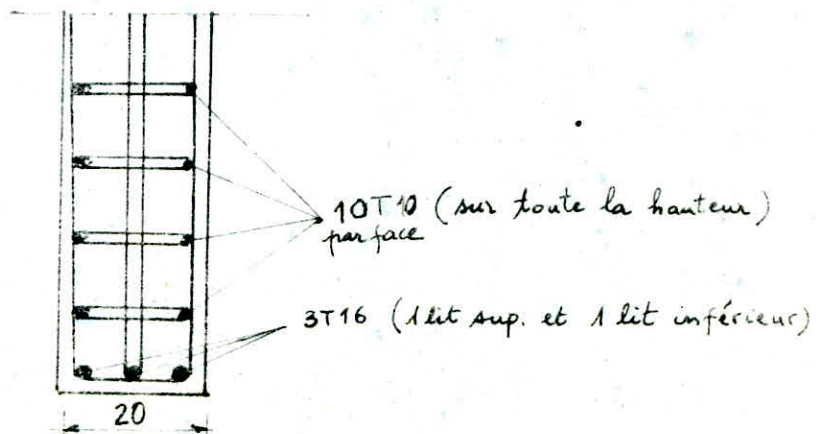 10T10 (sur toute la hauteur)
par face
3T16 (1 lit sup. et 1 lit inférieur)
20